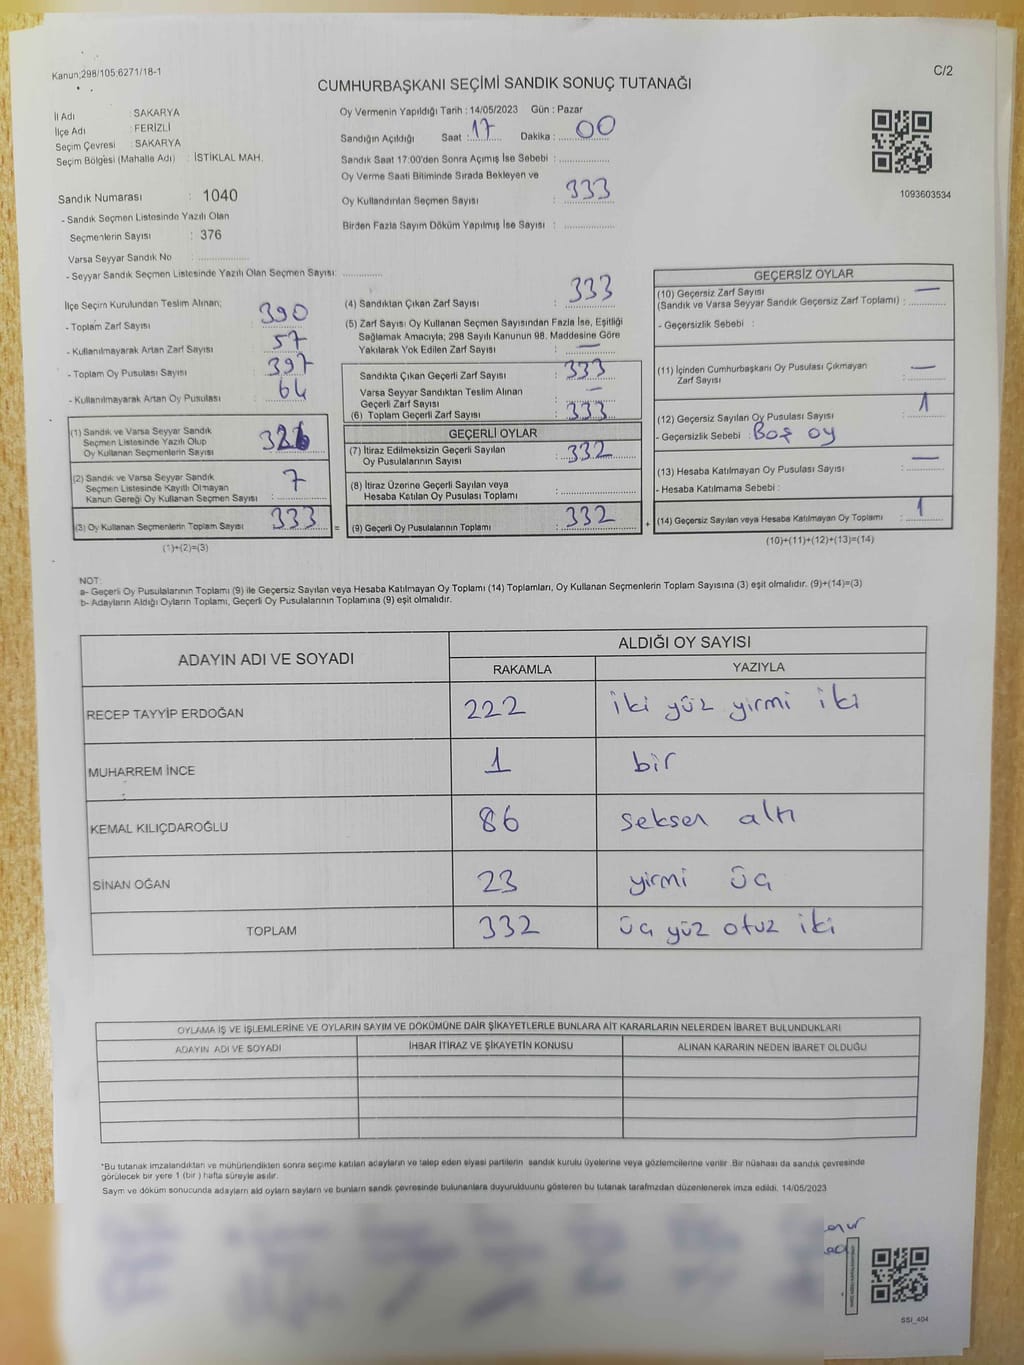 Kanun;298/105;6271/18-1
C/2
CUMHURBAŞKANI SEÇİMİ SANDIK SONUÇ TUTANAĞI
İl Adı : SAKARYA
İlçe Adı : FERİZLİ
Seçim Çevresi : SAKARYA
Seçim Bölgesi (Mahalle Adı) : İSTİKLAL MAH.
Sandık Numarası : 1040
- Sandık Seçmen Listesinde Yazılı Olan
Seçmenlerin Sayısı : 376
Varsa Seyyar Sandık No : ....................
- Seyyar Sandık Seçmen Listesinde Yazılı Olan Seçmen Sayısı: ..............
Oy Vermenin Yapıldığı Tarih : 14/05/2023 Gün : Pazar
Sandığın Açıldığı Saat : 17 Dakika : 00
Sandık Saat 17:00'den Sonra Açımış İse Sebebi : ..................
Oy Verme Saati Bitiminde Sırada Bekleyen ve
Oy Kullandırılan Seçmen Sayısı : 333
Birden Fazla Sayım Döküm Yapılmış İse Sayısı : ..................
1093603534
İlçe Seçim Kurulundan Teslim Alınan;
- Toplam Zarf Sayısı : 390
- Kullanılmayarak Artan Zarf Sayısı : 57
- Toplam Oy Pusulası Sayısı : 397
- Kullanılmayarak Artan Oy Pusulası : 64
(1) Sandık ve Varsa Seyyar Sandık
Seçmen Listesinde Yazılı Olup
Oy Kullanan Seçmenlerin Sayısı : 326
(2) Sandık ve Varsa Seyyar Sandık
Seçmen Listesinde Kayıtlı Olmayan
Kanun Gereği Oy Kullanan Seçmen Sayısı : 7
(3) Oy Kullanan Seçmenlerin Toplam Sayısı : 333
(1)+(2)=(3)
(4) Sandıktan Çıkan Zarf Sayısı : 333
(5) Zarf Sayısı Oy Kullanan Seçmen Sayısından Fazla İse, Eşitliği
Sağlamak Amacıyla; 298 Sayılı Kanunun 98. Maddesine Göre
Yakılarak Yok Edilen Zarf Sayısı : —
Sandıkta Çıkan Geçerli Zarf Sayısı : 333
Varsa Seyyar Sandıktan Teslim Alınan
Geçerli Zarf Sayısı : —
(6) Toplam Geçerli Zarf Sayısı : 333
GEÇERLİ OYLAR
(7) İtiraz Edilmeksizin Geçerli Sayılan
Oy Pusulalarının Sayısı : 332
(8) İtiraz Üzerine Geçerli Sayılan veya
Hesaba Katılan Oy Pusulası Toplamı : ..................
= (9) Geçerli Oy Pusulalarının Toplamı : 332
GEÇERSİZ OYLAR
(10) Geçersiz Zarf Sayısı —
(Sandık ve Varsa Seyyar Sandık Geçersiz Zarf Toplamı) : ............
- Geçersizlik Sebebi :
(11) İçinden Cumhurbaşkanı Oy Pusulası Çıkmayan
Zarf Sayısı : —
(12) Geçersiz Sayılan Oy Pusulası Sayısı : 1
- Geçersizlik Sebebi : Boş oy
(13) Hesaba Katılmayan Oy Pusulası Sayısı : —
- Hesaba Katılmama Sebebi :
+ (14) Geçersiz Sayılan veya Hesaba Katılmayan Oy Toplamı : 1
(10)+(11)+(12)+(13)=(14)
NOT:
a- Geçerli Oy Pusulalarının Toplamı (9) ile Geçersiz Sayılan veya Hesaba Katılmayan Oy Toplamı (14) Toplamları, Oy Kullanan Seçmenlerin Toplam Sayısına (3) eşit olmalıdır. (9)+(14)=(3)
b- Adayların Aldığı Oyların Toplamı, Geçerli Oy Pusulalarının Toplamına (9) eşit olmalıdır.
ADAYIN ADI VE SOYADI ALDIĞI OY SAYISI
RAKAMLA YAZIYLA
RECEP TAYYİP ERDOĞAN 222 iki yüz yirmi iki
MUHARREM İNCE 1 bir
KEMAL KILIÇDAROĞLU 86 seksen altı
SİNAN OĞAN 23 yirmi üç
TOPLAM 332 üç yüz otuz iki
OYLAMA İŞ VE İŞLEMLERİNE VE OYLARIN SAYIM VE DÖKÜMÜNE DAİR ŞİKAYETLERLE BUNLARA AİT KARARLARIN NELERDEN İBARET BULUNDUKLARI
ADAYIN ADI VE SOYADI İHBAR İTİRAZ VE ŞİKAYETİN KONUSU ALINAN KARARIN NEDEN İBARET OLDUĞU
*Bu tutanak imzalandıktan ve mühürlendikten sonra seçime katılan adayların ve talep eden siyasi partilerin sandık kurulu üyelerine veya gözlemcilerine verilir. Bir nüshası da sandık çevresinde
görülecek bir yere 1 (bir ) hafta süreyle asılır.
Sayım ve döküm sonucunda adayların ald oyların sayları ve bunların sandk çevresinde bulunanlara duyurulduunu gösteren bu tutanak tarafmzdan düzenlenerek imza edildi. 14/05/2023
SSI_404